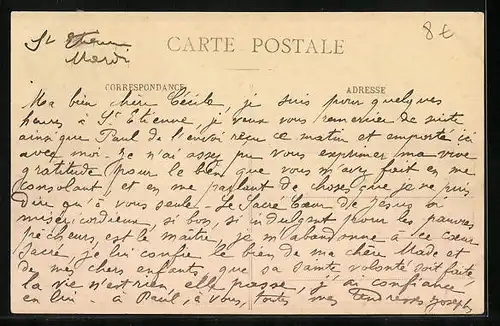 8€
St Etienne
Mardi
CARTE POSTALE
CORRESPONDANCE
ADRESSE
Ma bien chère Cécile, je suis pour quelques
heures à St Etienne, je veux vous remercier de suite
ainsi que Paul de l'envoi reçu ce matin et emporté ici
avec moi. Je n'ai assez pu vous exprimer ma vive
gratitude pour le bien que vous m'avez fait en me
consolant et en me parlant de choses que je ne puis
dire qu'à vous seule. Le Sacré Cœur de Jésus si
miséricordieux, si bon, si indulgent pour les pauvres
pécheurs, est le maître, je m'abandonne à ce cœur
sacré, je lui confie le bien de ma chère Made et
de mes chers enfants, que sa sainte volonté soit faite,
la vie n'est rien, elle passe, j'ai confiance
en lui. à Paul, à vous, toutes mes tendresses Joseph